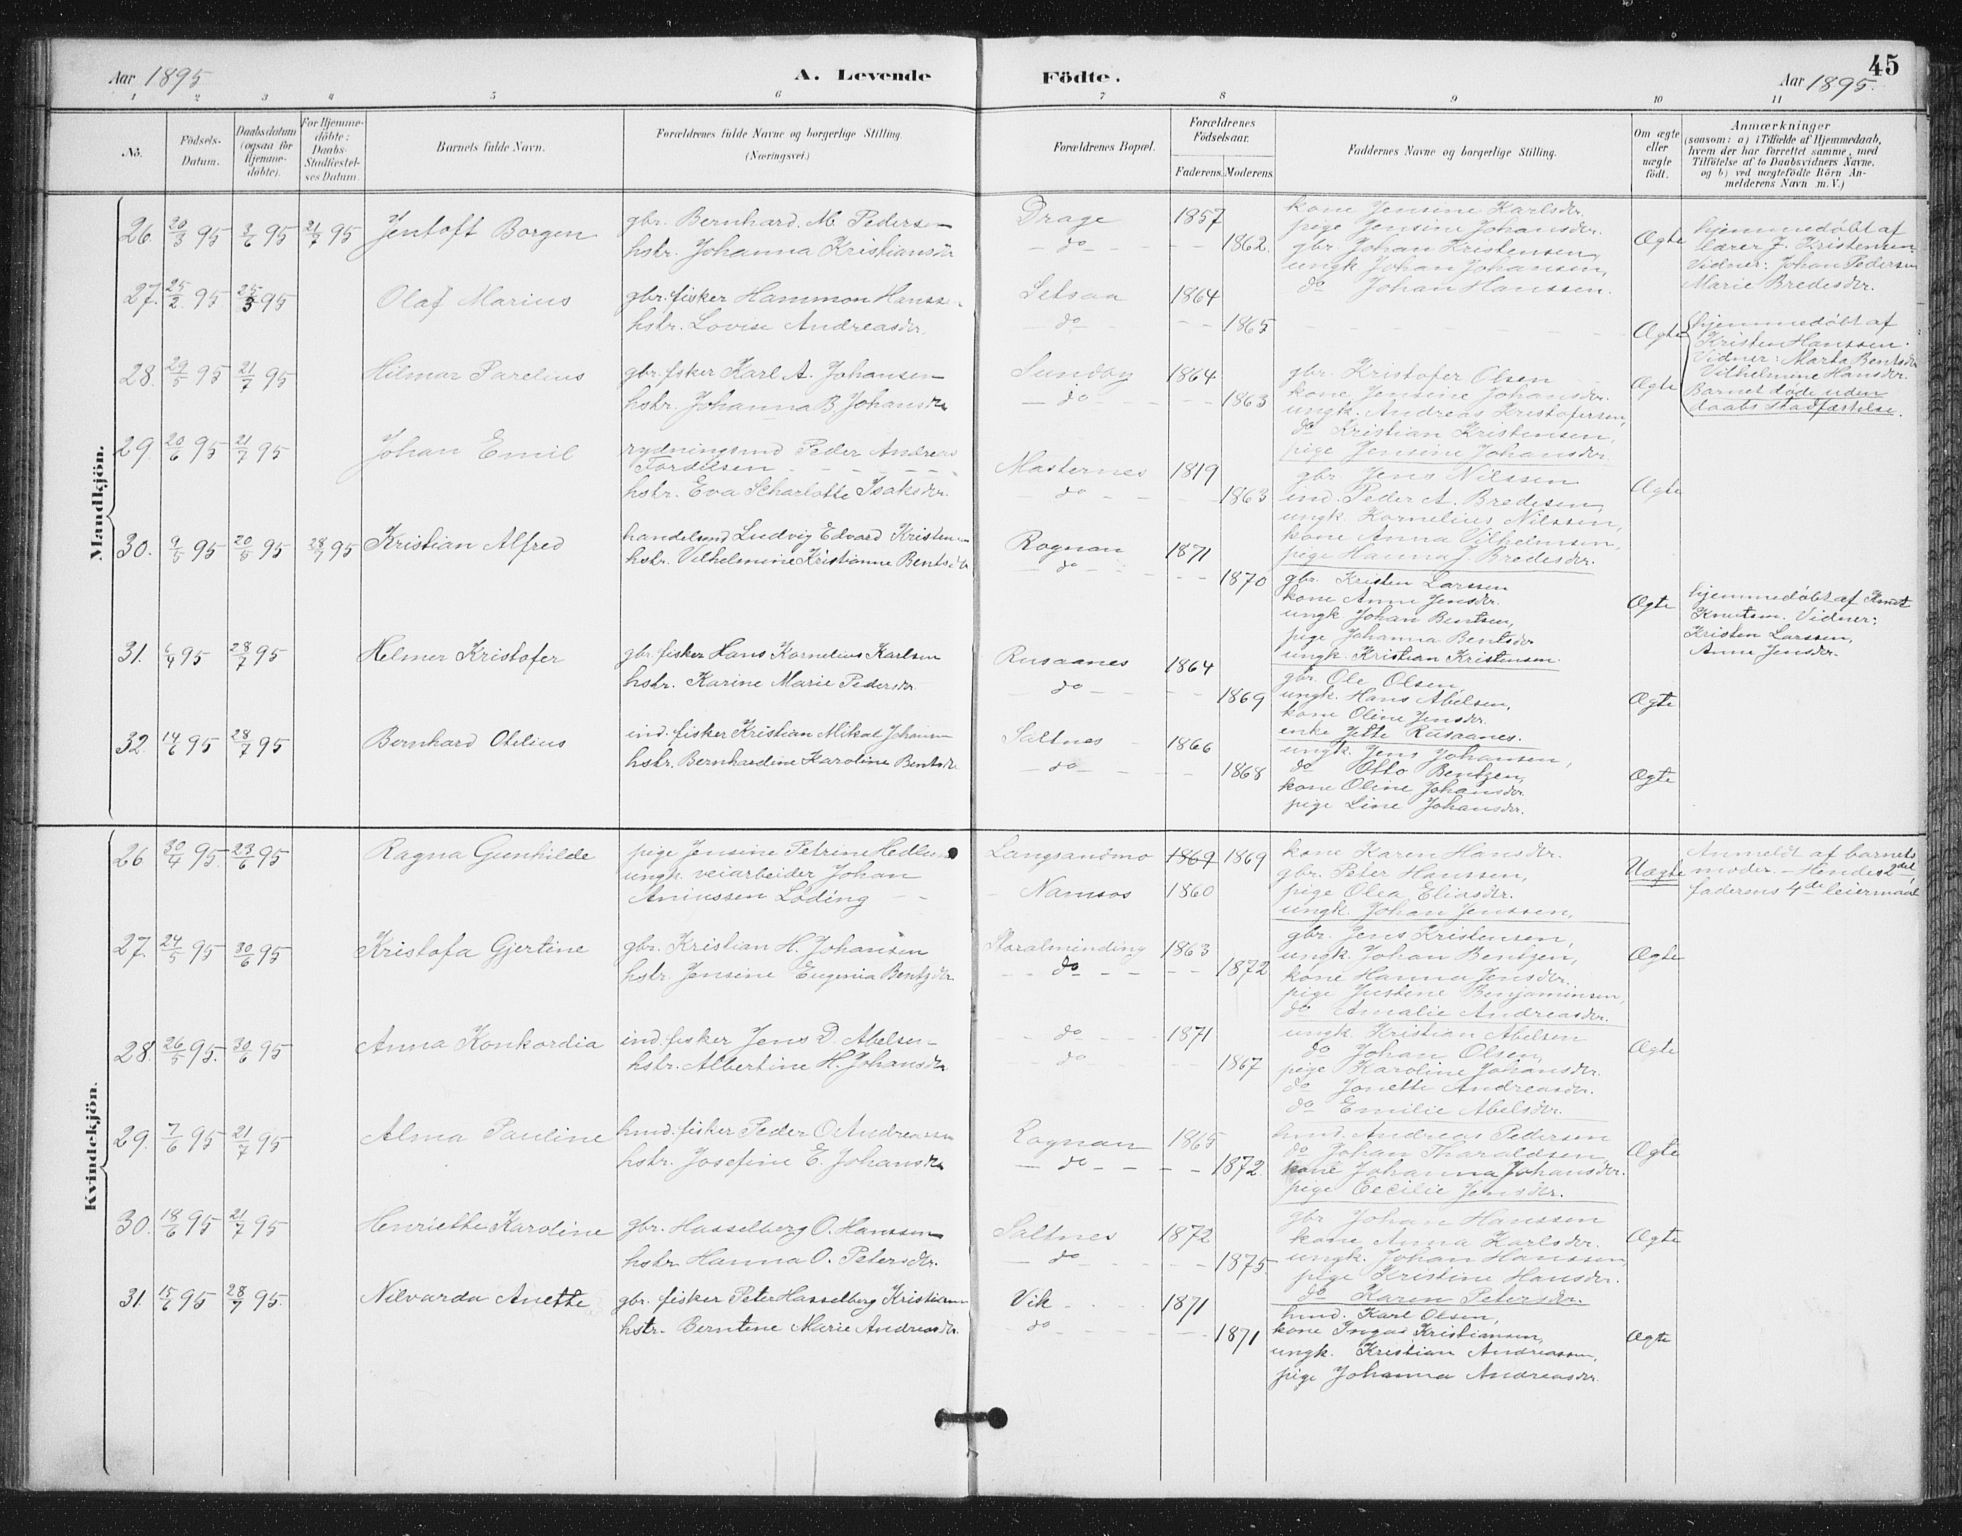 Aar 1895
A. Levende Födte.
Aar 1895.
45
1 2 3 4 5 6 7 8 9 10 11
No.
Födsels-Datum.
Daabsdatum (ogsaa for Hjemme-döbte).
For Hjemme-döbte: Daabs-Stadfæstel-ses Datum.
Barnets fulde Navn.
Forældrenes fulde Navne og borgerlige Stilling. (Næringsvei.)
Forældrenes Bopæl.
Forældrenes Födselsaar.
Faderens. Moderens.
Faddernes Navne og borgerlige Stilling.
Om ægte eller uægte födt.
Anmærkninger
(saasom: a) i Tilfælde af Hjemmedaab, hvem der har forrettet samme, med Tilföielse af to Daabsvidners Navne, og b) ved uægtefödte Börn An-melderens Navn m. V.)
Mandkjön.
26. 20/3 95 3/6 95 21/7 95 Jentoft Borgen
gbr. Bernhard M. Pedersen
hstr. Johanna Kristiansdr
Drage 1857
do 1862.
kone Jensine Karlsdr.
pige Jensine Johansdr.
gbr. Johan Kristensen,
ungk Johan Johansen,
do Johan Hanssen.
Ægte
hjemmedöbt af
lærer J. Kristensen
Vidner: Johan Pedersen
Marie Bredesdr.
27. 25/2 95 25/3 95 Olaf Marius
gbr. fisker Hammon Hanssen
hstr. Lovise Andreasdr.
Setsaa 1864
do 1865
Ægte
hjemmedöbt af
Kristen Hanssen.
Vidner: Marta Bentsdr
Vilhelmine Hansdr.
Barnet döde uden
daabs stadfæstelse.
28. 29/5 95 21/7 95 Hilmar Parelius
gbr. fisker Karl A. Johansen
hstr. Johanna B. Johansdr
Sundby 1864
do 1863
gbr. Kristofer Olsen
kone Jensine Johansdr.
ungk. Andreas Kristofersen,
do Kristian Kristensen,
pige Jensine Johansdr.
Ægte
29. 20/6 95 21/7 95 Johan Emil
rydningsmd Peder Andreas
Tordilsen
hstr. Eva Scharlotte Isaksdr.
Masternes 1819
do 1863
gbr. Jens Nilssen
ind. Peder A. Bredesen,
ungk. Kornelius Nilssen,
kone Anna Vilhelmsen,
pige Hanna J Bredesdr.
Ægte
30. 9/5 95 20/5 95 28/7 95 Kristian Alfred
handelsmd Ludvig Edvard Kristensen
hstr. Vilhelmine Kristianne Bentsdr
Rognan 1871
do 1870
gbr. Kristen Larssen
kone Anne Jensdr.
ungk Johan Bentsen,
pige Johanna Bentsdr
ungk. Kristian Kristensen
Ægte
hjemmedöbt af Knut
Knutsen. Vidner:
Kristen Larssen,
Anne Jensdr.
31. 6/4 95 28/7 95 Helmer Kristofer
gbr. fisker Hans Kornelius Karlsen
hstr. Karine Marie Pedersdr
Rusaanes 1864
do 1869
gbr. Ole Olsen
ungk. Hans Abelsen,
kone Oline Jensdr.
enke Jette Rusaanes.
Ægte
32. 14/6 95 28/7 95 Bernhard Otelius
ind. fisker Kristian Mikal Johansen
hstr. Bernhardine Karoline Bentsdr
Saltnes 1866
do 1868
ungk. Jens Johansen,
do Otto Bentzen,
kone Oline Johansdr.
pige Line Johansdr.
Ægte
Kvindekjön.
26 30/4 95. 23/6 95 Ragna Gunhilde
pige Jensine Petrine Hedlund
ungk. veiarbeider Johan
Aniussen Löding
Langsandmo 1869 1869
Namsos 1860
kone Karen Hansdr.
gbr. Peter Hanssen,
pige Olea Eliasdr.
ungk. Johan Jenssen,
Uægte
Anmeldt af barnets
moder. - Hendes 2det
faderens 4de leiermaal
27. 24/5 95 30/6 95 Kristofa Gjertine
gbr. Kristian H. Johansen
hstr. Jensine Eugenia Bentzdr
Storalminding 1863
do 1872
gbr. Jens Kristensen,
ungk. Johan Bentzen,
kone Hanna Jensdr.
pige Justine Benjaminsen,
do Amalie Andreasdr.
Ægte
28. 26/5 95. 30/6 95 Anna Konkordia
ind. fisker Jens D. Abelsen
hstr. Albertine H. Johansdr
do 1871
do 1867
ungk. Kristian Abelsen
do Johan Olsen,
pige Karoline Johansdr.
do Jonette Andreasdr.
do Emilie Abelsdr.
Ægte
29. 7/6 95 21/7 95 Alma Pauline
hmd. fisker Peder O. Andreassen
hstr. Josefine E. Johansdr
Rognan 1865
do 1872.
hmd. Andreas Pedersen
do Johan Tharaldsen,
kone Johanna Johansdr.
pige Cecilie Jensdr.
Ægte
30. 18/6 95 21/7 95 Henriette Karoline
gbr. Hasselberg O. Hanssen
hstr. Hanna O. Petersdr.
Saltnes 1872
do 1875.
gbr Johan Hanssen
kone Anna Karlsdr.
ungk. Johan Hanssen,
pige Kristine Hansdr.
do Karen Petersdr.
Ægte
31. 15/6 95 28/7 95. Nilvarda Anette
gbr. fisker Peter Hasselberg Kristiansen
hstr. Berntine Marie Andreasdr.
Vik 1871
do 1871
hmd. Karl Olsen,
kone Inga Kristiansen,
ungk. Kristian Andreassen,
pige Johanna Andreasdr.
Ægte